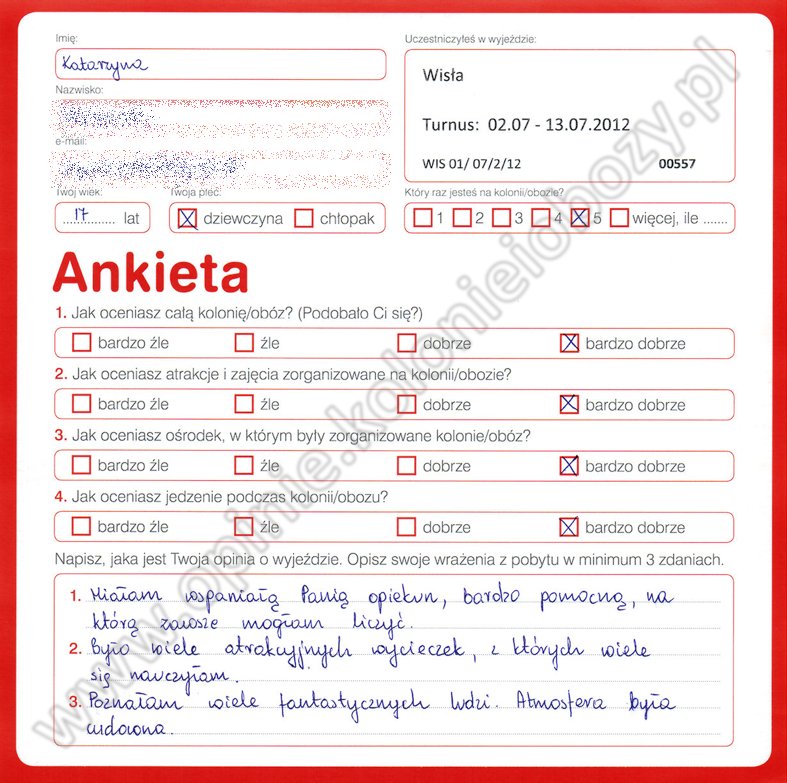 Imię:
Uczestniczyłeś w wyjeździe:
Katarzyna
Wisła
Nazwisko:
Turnus: 02.07 - 13.07.2012
e-mail:
WIS 01/ 07/2/12 00557
Twój wiek: Twoja płeć: Który raz jesteś na kolonii/obozie?
17 lat dziewczyna chłopak 1 2 3 4 5 więcej, ile .......
Ankieta
1. Jak oceniasz całą kolonię/obóz? (Podobało Ci się?)
bardzo źle źle dobrze bardzo dobrze
2. Jak oceniasz atrakcje i zajęcia zorganizowane na kolonii/obozie?
bardzo źle źle dobrze bardzo dobrze
3. Jak oceniasz ośrodek, w którym były zorganizowane kolonie/obóz?
bardzo źle źle dobrze bardzo dobrze
4. Jak oceniasz jedzenie podczas kolonii/obozu?
bardzo źle źle dobrze bardzo dobrze
Napisz, jaka jest Twoja opinia o wyjeździe. Opisz swoje wrażenia z pobytu w minimum 3 zdaniach.
1. Miałam wspaniałą Panią opiekun, bardzo pomocną, na
którą zawsze mogłam liczyć.
2. Było wiele atrakcyjnych wycieczek, z których wiele
się nauczyłam.
3. Poznałam wiele fantastycznych ludzi. Atmosfera była
cudowna.
www.opinie.kolonieiobozy.pl